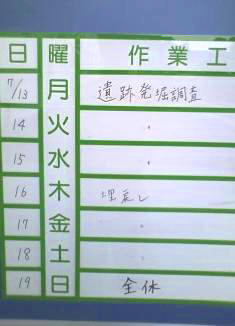 日 曜 作業工
7/13 月 遺跡発掘調査
14 火 〃
15 水 〃
16 木 埋戻し
17 金 〃
18 土 〃
19 日 全休